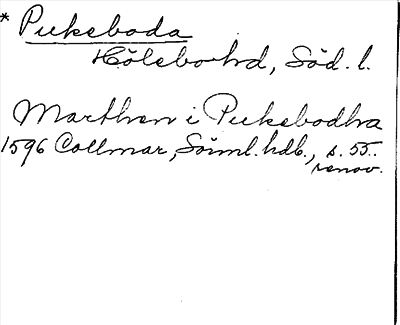 * Pukeboda
Hölebo hd, Söd. l.
Marthen i Pukebodha
1596 Collmar, Sörml. hdl., s. 55.
renov.